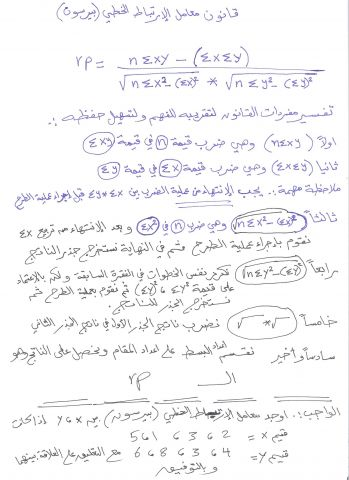 قانون معامل الارتباط الخطي (بيرسون)
rp = n ΣXY - (ΣXΣY)
√n ΣX² - (ΣX)² * √n ΣY² - (ΣY)²
تفسير مفردات القانون لتقريبه للفهم ولتسهيل حفظه :.
اولاً (nΣXY) وهي ضرب قيمة n في قيمة ΣXY
ثانيا (ΣXΣY) وهي ضرب قيمة ΣX في قيمة ΣY
ملاحظة مهمة :. يجب الانتهاء من عملية الضرب بين ΣX * ΣY قبل اجراء عملية الطرح
ثالثاً √n ΣX² - (ΣX)² وهي ضرب n في ΣX² و بعد الانتهاء من تربيع ΣX
نقوم باجراء عملية الطرح ثم في النهاية نستخرج جذر الناتج
رابعاً √n ΣY² - (ΣY)² نكرر نفس الخطوات في الفقرة السابقة ولكن بالاعتماد
على قيمة ΣY² و (ΣY)² ثم نقوم بعملية الطرح ثم
نستخرج الجذر للناتج.
خامساً √ * √ نضرب ناتج الجذر الاول في ناتج الجذر الثاني
سادساً وأخير نقسم اعداد البسط على اعداد المقام ونحصل على الناتج وهو
الـ rp
الواجب :. اوجد معامل الارتباط الخطي (بيرسون) بين X و Y اذا كانت
قيم X = 5 6 1 6 3 6 2
قيم Y = 6 6 8 6 3 6 4 مع التعليق على العلاقة بينهما
و بالتوفيق